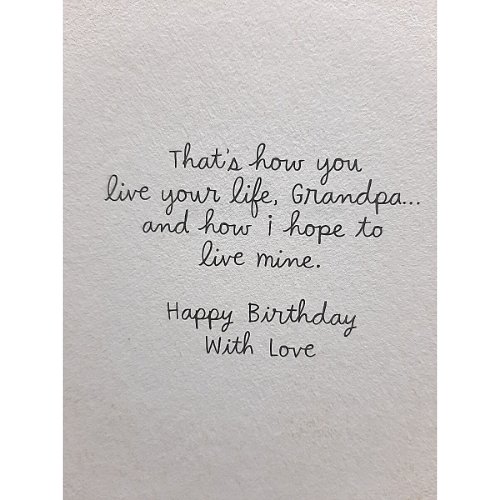 That's how you
live your life, Grandpa...
and how i hope to
live mine.
Happy Birthday
With Love